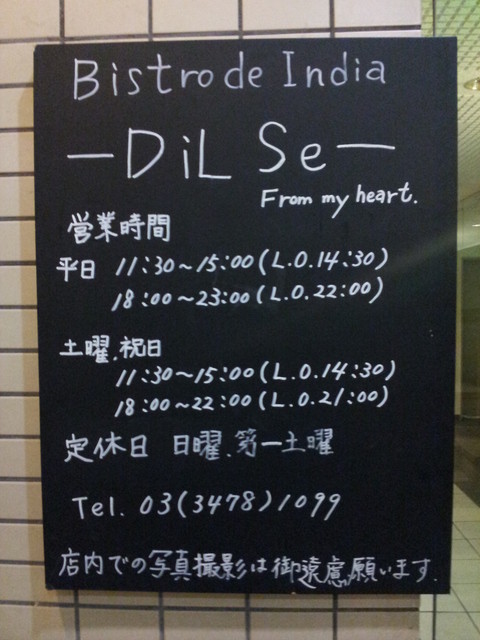 Bistro de India
－DiL Se－
From my heart.
営業時間
平日 11:30～15:00(L.O.14:30)
18:00～23:00(L.O.22:00)
土曜.祝日
11:30～15:00(L.O.14:30)
18:00～22:00(L.O.21:00)
定休日 日曜.第一土曜
Tel. 03(3478)1099
店内での写真撮影は御遠慮願います.